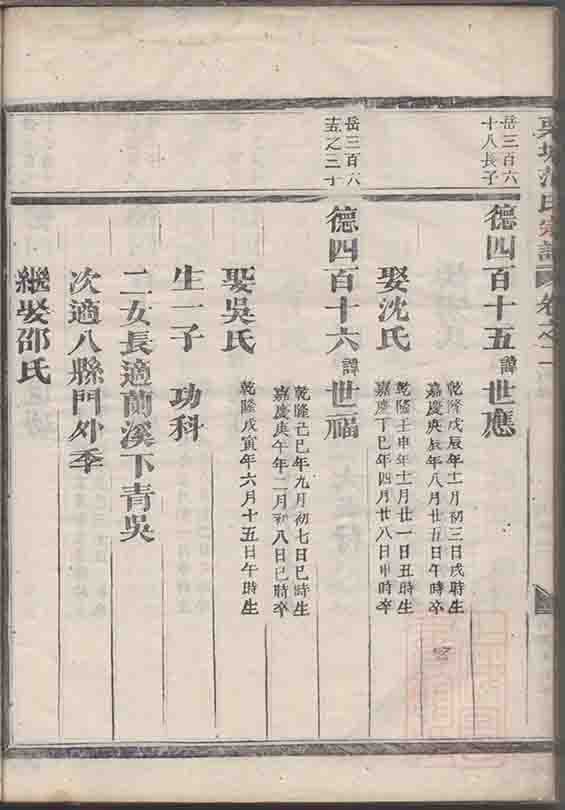 范氏宗譜
岳三百六
十八長子
德四百十五 諱世應
乾隆戊辰年十一月初三日戌時生
嘉慶庚辰年八月廿五日午時卒
娶沈氏
乾隆壬申年十一月廿一日丑時生
嘉慶丁巳年四月廿八日申時卒
岳三百六
十五之三子
德四百十六 諱世福
乾隆己巳年九月初七日巳時生
嘉慶庚午年二月初八日巳時卒
娶吳氏
乾隆戊寅年六月十五日午時生
生一子 功科
二女長適蘭溪下青吳
次適八縣門外季
繼娶邵氏